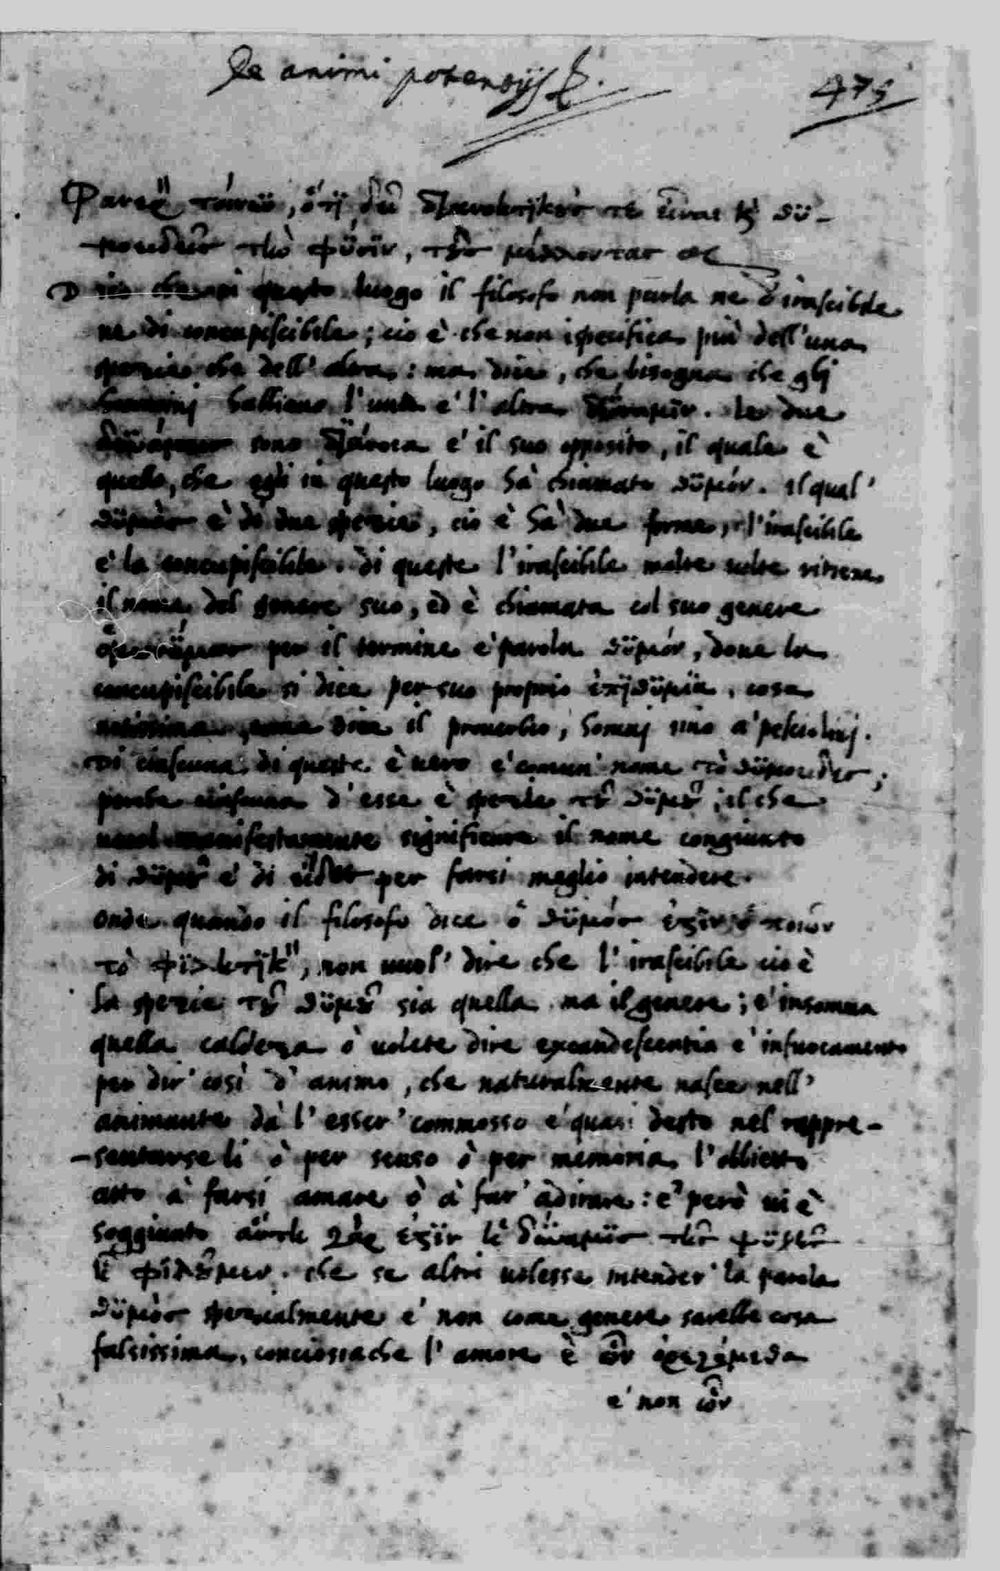 De animi potentijs.
475
Φανερὸν τοίνυν, ὅτι δεῖ διανοητικούς τε εἶναι καὶ θυ-
μοειδεῖς τὴν φύσιν, τοὺς μέλλοντας
in questo luogo il filosofo non parla ne d'irascibile
ne di concupiscibile; cio è che non ispecifica più dell'una
spezie che dell'altra: ma dice, che bisogna che gli
habbiano l'una e l'altra δύναμιν. le due
δυνάμεις sono διάνοια e il suo opposito, il quale è
quello, che egli in questo luogo hà chiamato θυμόν. il qual'
θυμὸς è di due spezie, cio è hà due forme, l'irascibile
e la concupiscibile. di queste l'irascibile molte volte ritiene
il nome del genere suo, ed è chiamata col suo genere
per il termine e parola θυμόν, doue la
concupiscibile si dice per suo proprio ἐπιθυμία, cosa
notissima, come dice il prouerbio, homai sino a' pesciolini.
Di ciascuna di queste è uero e comun' nome τὸ θυμοειδὲς;
perche ciascuna d'esse è spezie τοῦ θυμοῦ, il che
uuol manifestamente significare il nome congiunto
di θυμοῦ e di εἶδος per farsi meglio intendere.
onde quando il filosofo dice ὁ θυμός ἐστιν ὁ ποιῶν
τὸ φιλητικὸν, non uuol' dire che l'irascibile cio è
la spezie τοῦ θυμοῦ sia quella, ma il genere; e insomma
quella caldezza ò uolete dire excandescentia e infuocamento
per dir' così d'animo, che naturalmente nasce nell'
animante dà l'esser' commosso e quasi desto nel rappre-
-sentarseli ò per senso ò per memoria l'obbietto
atto à farsi amare ò à far' adirare: e però ui è
soggiunto αὕτη γάρ ἐστιν ἡ δύναμις τῆς ψυχῆς
ᾗ φιλοῦμεν. che se altri uolesse intender' la parola
θυμὸς spezialmente e non come genere sarebbe cosa
falsissima, conciosiache l'amore è ὧν ὀρεγόμεθα
e non ὧν